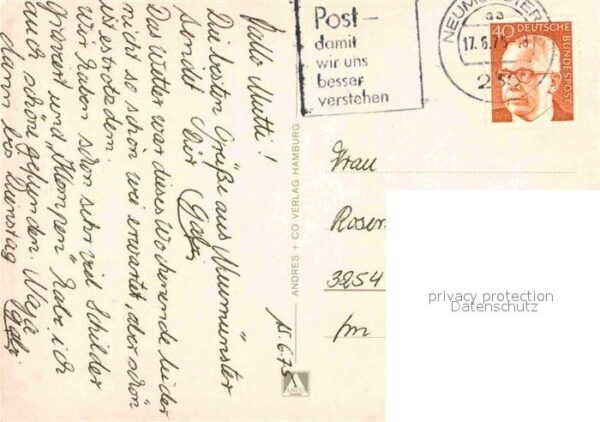 Hallo Mutti!
Die besten Grüße aus Neumünster
sendet Dir Gabi
Das Wetter war dieses Wochenende leider
nicht so schön wie erwartet, aber schön
ist es trotzdem.
Wir haben schon sehr viel Schilder
graviert und "Klompen" habe ich
auch schöne gefunden. Naja
dann bis Dienstag Gabi
15.6.75
ANDRES + CO VERLAG HAMBURG
Post –
damit
wir uns
besser
verstehen
17.6.75
40 DEUTSCHE
BUNDESPOST
Frau
3254
Im
privacy protection
Datenschutz